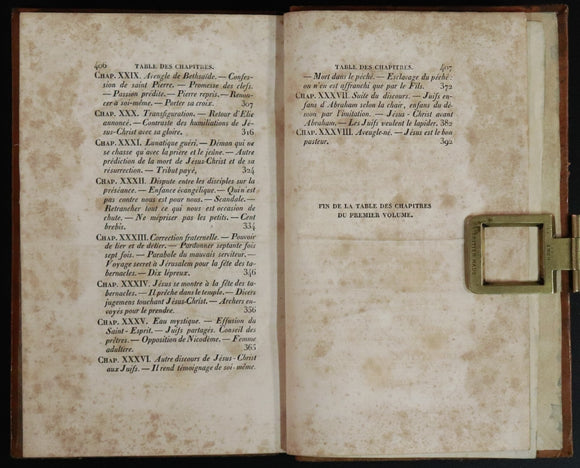 406 TABLE DES CHAPITRES.
CHAP. XXIX. Aveugle de Bethsaïde. — Confes-
sion de saint Pierre. — Promesse des clefs.
— Passion prédite. — Pierre repris. — Renon-
cer à soi-même. — Porter sa croix. 307
CHAP. XXX. Transfiguration. — Retour d'Elie
annoncé. — Contraste des humiliations de Jé-
sus-Christ avec sa gloire. 316
CHAP. XXXI. Lunatique guéri. — Démon qui ne
se chasse qu'avec la prière et le jeûne. — Autre
prédiction de la mort de Jésus-Christ et de sa
résurrection. — Tribut payé. 324
CHAP. XXXII. Dispute entre les disciples sur la
préséance. — Enfance évangélique. — Qui n'est
pas contre nous est pour nous. — Scandale. —
Retrancher tout ce qui nous est occasion de
chute. — Ne mépriser pas les petits. — Cent
brebis. 334
CHAP. XXXIII. Correction fraternelle. — Pouvoir
de lier et de délier. — Pardonner septante fois
sept fois. — Parabole du mauvais serviteur. —
Voyage secret à Jérusalem pour la fête des ta-
bernacles. — Dix lépreux. 346
CHAP. XXXIV. Jésus se montre à la fête des ta-
bernacles. — Il prêche dans le temple. — Divers
jugemens touchant Jésus-Christ. — Archers en-
voyés pour le prendre. 356
CHAP. XXXV. Eau mystique. — Effusion du
Saint-Esprit. — Juifs partagés. Conseil des
prêtres. — Opposition de Nicodème. — Femme
adultère. 365
CHAP. XXXVI. Autre discours de Jésus-Christ
aux Juifs. — Il rend témoignage de soi-même.
TABLE DES CHAPITRES. 407
— Mort dans le péché. — Esclavage du péché:
on n'en est affranchi que par le Fils. 372
CHAP. XXXVII. Suite du discours. — Juifs en-
fans d'Abraham selon la chair, enfans du dé-
mon par l'imitation. — Jésus-Christ avant
Abraham. — Les Juifs veulent le lapider. 382
CHAP. XXXVIII. Aveugle-né. — Jésus est le bon
pasteur. 392
FIN DE LA TABLE DES CHAPITRES
DU PREMIER VOLUME.